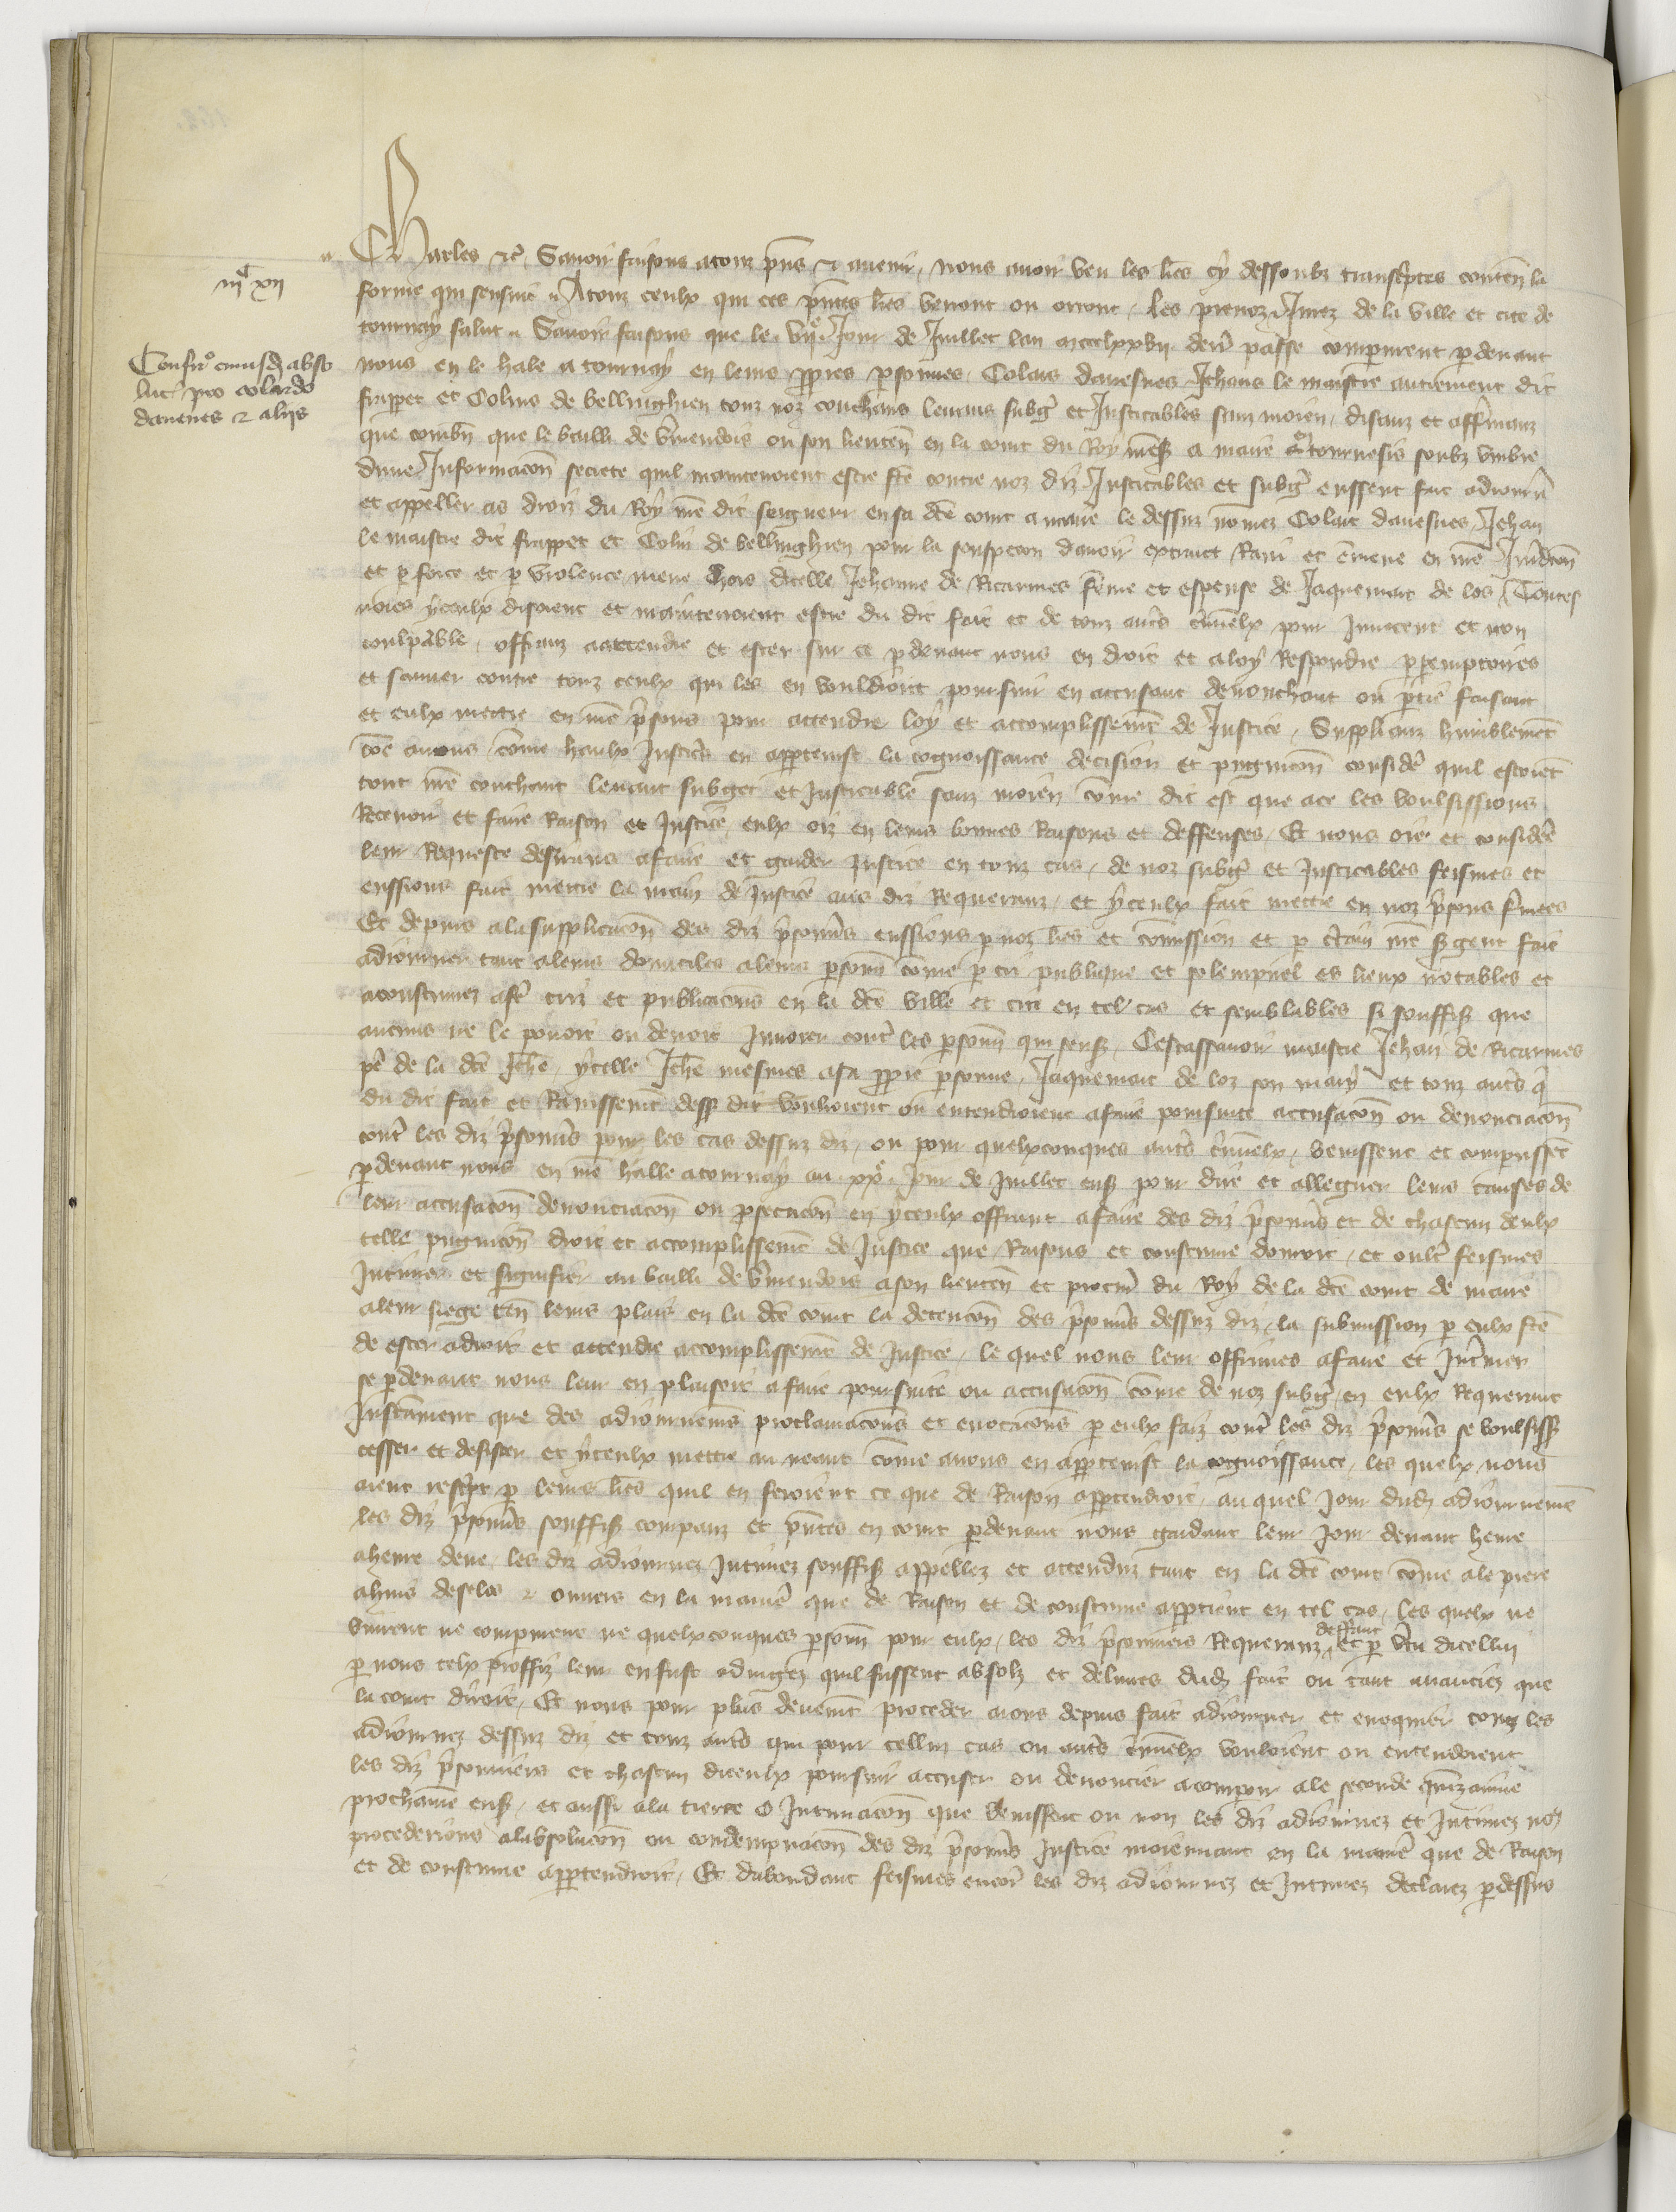 iijᶜ xij
Confirº cuiusdã abso
lut' pro colardo
dauenes & alijs
Charles etc̃ Sauoir faisons a touz p̃ns et auenir, nous auoir veu les l̃res cy dessoubz transcriptes conten̄ la
forme qui sensuit. A touz ceulx qui ces p̃ntes l̃res verront ou orront, les preuoz Jurez de la ville et cite de
tournay salut. Sauoir faisons que le vijᵉ Jour de Juillet lan mccclxxvij derr̄ passe comparurent p̱deuant
nous en le hale a tournay en leurs p̱pres p̱sonnes, Colars dauesnes Jehans le maistre autrement dit
frappet et Colins de bellinghien touz noz couchans leuans subg̃ et Justicables sanz moien, disanz et affermanz
que combn̄ que le bailli de v̄mendois ou son lieuten̄ en la court du Roy ñres̃ a maire et tournesis soubz vmbre
dune Informacon̄ secrete quil maintenoient estre fc̃e contre noz diz Justicables et subg̃ eussent fait adiourn̄
et appeller as droiz du Roy ñre dit seigneur en sa dc̃e court a maire le dessuz nōmez Colart dauesnes, Jehan
le maistre dit frappet et Colin de bellinghien pour la souspecon dauoir extraict Raui et emene en ñre Juridicon̄
et p̱ force et p̱ violence mene hors dicelle Jehanne de Ricarmes fēme et espeuse de Jaquemart de los, Toutes
uoies yceulx disoient et maintenoient estre du dit fait et de touz aut̃s c̃minelx pour Innocent et non
coulpable, offranz a attendre et ester sur ce p̱deuant nous en droit et a loy Respondre p̱emptoires
et sauuer contre touz ceulx qui les en vouldroit poursuir en accusant denonchant ou p̱tie faisant
et eulx mettre en ñre p̃sons pour attendre loy et accomplissem̄t de Justice, Supplianz humblem̄t
cōe auons, cōme haulx Justic̃s en app̱tenist la cognoissance decision et pugnicon̄ consider̃ quil estoiēt
tout ñre couchant leuant subget et Justicable sanz moien cōme dit est que a ce les voulsissions
Receuoir et faire Raison et Justice, eulx oiz en leurs bonnes Raisons et deffenses, Et nous oie et consider̃
leur Requeste desirans a faire et garder Justice en touz cas, de noz subg̃ et Justicables feismes et
eussions fait mettre la main de Justice aus diz Requeranz, et yceulx fait mettre en noz p̃sons f̃mees
Et depuis a la supplicacon̄ des diz p̃sonn̄s eussions p̱ noz l̃res et cōmission et p̱ c̃tain ñre s̃gent fait
adiourner tant a leurs domiciles a leurs p̱sonn̄ cōme p̱ cri publique et solempnel es lieux notables et
acoustumez a fr̃ criz et publicacons en la dc̃e ville et cite en tel cas et semblables si souffis̃ que
aucuns ne le pouoit ou deuoit Innorer cont̃ les p̱sonn̄ qui sens̃, Cestassauoir maistre Jehan de Ricarmes
pe͂ de la dc̃e Jeh̃e, ycelle Jeh̃e mesmes a sa p̱pre p̱sonne, Jaquemart de loz son mary et touz aut̃s q̃
du dit fait et Rauissem̄t dess̃ dit vouloient ou entendoient a faire poursuite accusacon̄ ou denonciacon̄
cont̃ les diz p̃sonn̄s pour les cas dessuz diz, ou pour quelxconques aut̃s c̃minelx, venissent et comparussēt
p̱deuant nous en ñre halle a tournay au xxᵉ Jour de Juillet ens̃ pour dire et alleguer leurs causes de
leur accusacon̄ denonciacon̄ ou p̱secucon̄ en yceulx offrant a faire des diz p̃sonn̄s et de chascun deulx
telle pugnicon̄ droit et accomplissem̄t de Justice que Raisons et coustume donroit, et oult̃ feismes
Intimer et signifier au bailli de v̄mendois a son lieuten̄ et procur̃ du Roy de la dc̃e court de maire
a leur siege ten̄ leurs plais en la dc̃e court la detencon̄ des p̃sonn̄s dessuz diz, la submission p̱ eulx fc̃e
de ester a droit et attendre accomplissem̄t de Justice, le quel nous leur offrimes a faire et Intimer
se p̱deuant nous leur en plaisoit a faire poursuite ou accusacon̄ cōme de noz subg̃, en eulx Requerant
Instāment que des adiournem̄s proclamacons et euocacons p̱ eulx faiz cont̃ les diz p̃sonn̄s se voulsiss̃
cesser et desister et yceulx mettre au neant cōme auons en app̱tenist la cognoissance, les quelx nous
aient rescript p̱ leurs l̃res quil en feroient ce que de Raison app̱tendroit, au quel Jour dud̃ adiournemē
les diz p̃sonn̄s souffis̃ comparanz et p̃ntes en court p̱deuant nous gardant leur Jour deuant heure
a heure deue, les diz adiournez Intimez souffis̃ appellez et attenduz tant en la dc̃e court cōme a le piere
a huis desclos & ouuers en la manie͂ que de Raison et de coustume app̱tient en tel cas, les quelx ne
vinrent ne comparurent ne quelxconques p̱sonn̄ pour eulx, les diz p̃sonniers Requeranz deffaut et p̱ v̄tu dicellui
p̱ nous telx proffiz leur en fust adiugez quil fussent absolz et deliures dud̃ fait ou tant auanciez que
la court diroit, Et nous pour plus deuem̄t proceder aions depuis fait adiourner et euoquier touz les
adiournez dessuz diz et touz aut̃s qui pour cellui cas ou aut̃s c̃minelx vouloient ou entendoient
les diz p̃sonniers et chascun diceulx poursuir accuser ou denoncier a comparoir a le seconde quinzainne
prochainne ens̃, et aussi a la tierce o Intimacon̄ que venissent ou non les diz adiournez et Intimez noꝰ
procederions a labsolucon̄ ou condempnacon̄ des diz p̃sonn̄s Justice moiennant en la manie͂ que de Raison
et de coustume app̱tendroit, Et dabondant feismes encor̃ les diz adiournez et Intimez declarez p̱dessus